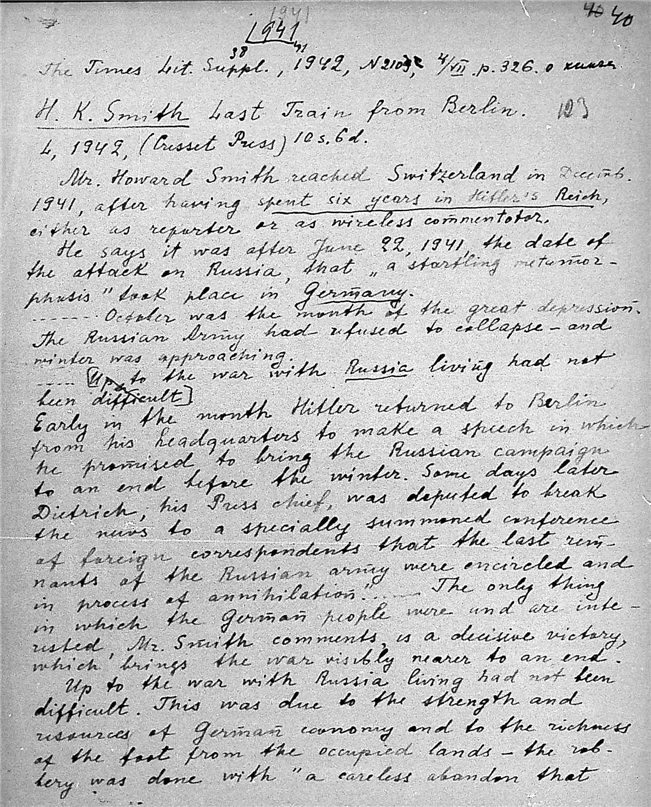 1941
1941
40 40
38 41
The Times Lit. Suppl., 1942, N 2103, 4/VII p. 326. о книге
H. K. Smith Last Train from Berlin. 123
L, 1942, (Cresset Press) 10 s. 6 d.
Mr. Howard Smith reached Switzerland in Decemb.
1941, after having spent six years in Hitler's Reich,
either as reporter or as wireless commentator.
He says it was after June 22, 1941, the date of
the attack on Russia, that „a startling metamor-
phosis" took place in Germany.
....... October was the month of the great depression.
The Russian Army had refused to collapse – and
winter was approaching.
..... [Up to the war with Russia living had not
been difficult]
Early in the month Hitler returned to Berlin
from his headquarters to make a speech in which
he promised to bring the Russian campaign
to an end before the winter. Some days later
Dietrich, his Press chief, was deputed to break
the news to a specially summoned conference
of foreign correspondents that the last rem-
nants of the Russian army were encircled and
in process of annihilation." ..... The only thing
in which the German people were und are inte-
rested, Mr. Smith comments, is a decisive victory,
which brings the war visibly nearer to an end.
Up to the war with Russia living had not been
difficult. This was due to the strength and
resources of German economy and to the richness
of the loot from the occupied lands – the rob-
bery was done with "a careless abandon that